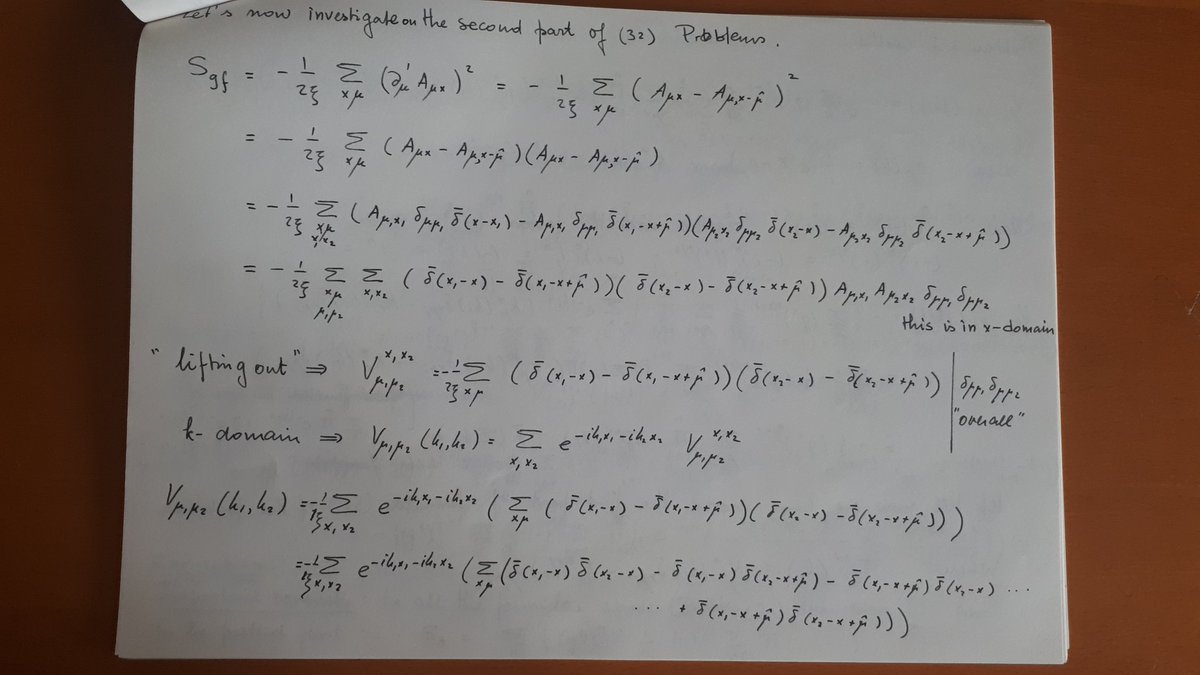 Let's now investigate on the second part of (32) Problems.
S_gf = - 1/2ξ Σ_xμ (∂'_μ A_μx)² = - 1/2ξ Σ_xμ ( A_μx - A_μ,x-μ̂ )²
= - 1/2ξ Σ_xμ ( A_μx - A_μ,x-μ̂ )( A_μx - A_μ,x-μ̂ )
= - 1/2ξ Σ_xμ x₁x₂ ( A_μ₁x₁ δ_μμ₁ δ̄(x-x₁) - A_μ₁x₁ δ_μμ₁ δ̄(x₁-x+μ̂))( A_μ₂x₂ δ_μμ₂ δ̄(x₂-x) - A_μ₂x₂ δ_μμ₂ δ̄(x₂-x+μ̂))
= - 1/2ξ Σ_xμ μ₁μ₂ Σ_x₁x₂ ( δ̄(x₁-x) - δ̄(x₁-x+μ̂))( δ̄(x₂-x) - δ̄(x₂-x+μ̂)) A_μ₁x₁ A_μ₂x₂ δ_μμ₁ δ_μμ₂
this is in x-domain
"lifting out" ⇒ V_μ₁μ₂^x₁x₂ = - 1/2ξ Σ_xμ ( δ̄(x₁-x) - δ̄(x₁-x+μ̂))( δ̄(x₂-x) - δ̄(x₂-x+μ̂)) | δ_μμ₁ δ_μμ₂
"overall"
k-domain ⇒ V_μ₁μ₂(k₁,k₂) = Σ_x₁x₂ e^-ik₁x₁-ik₂x₂ V_μ₁μ₂^x₁x₂
V_μ₁μ₂(k₁,k₂) = - 1/2ξ Σ_x₁x₂ e^-ik₁x₁-ik₂x₂ ( Σ_xμ ( δ̄(x₁-x) - δ̄(x₁-x+μ̂))( δ̄(x₂-x) - δ̄(x₂-x+μ̂)))
= - 1/2ξ Σ_x₁x₂ e^-ik₁x₁-ik₂x₂ ( Σ_xμ ( δ̄(x₁-x) δ̄(x₂-x) - δ̄(x₁-x) δ̄(x₂-x+μ̂) - δ̄(x₁-x+μ̂) δ̄(x₂-x) ...
... + δ̄(x₁-x+μ̂) δ̄(x₂-x+μ̂)))